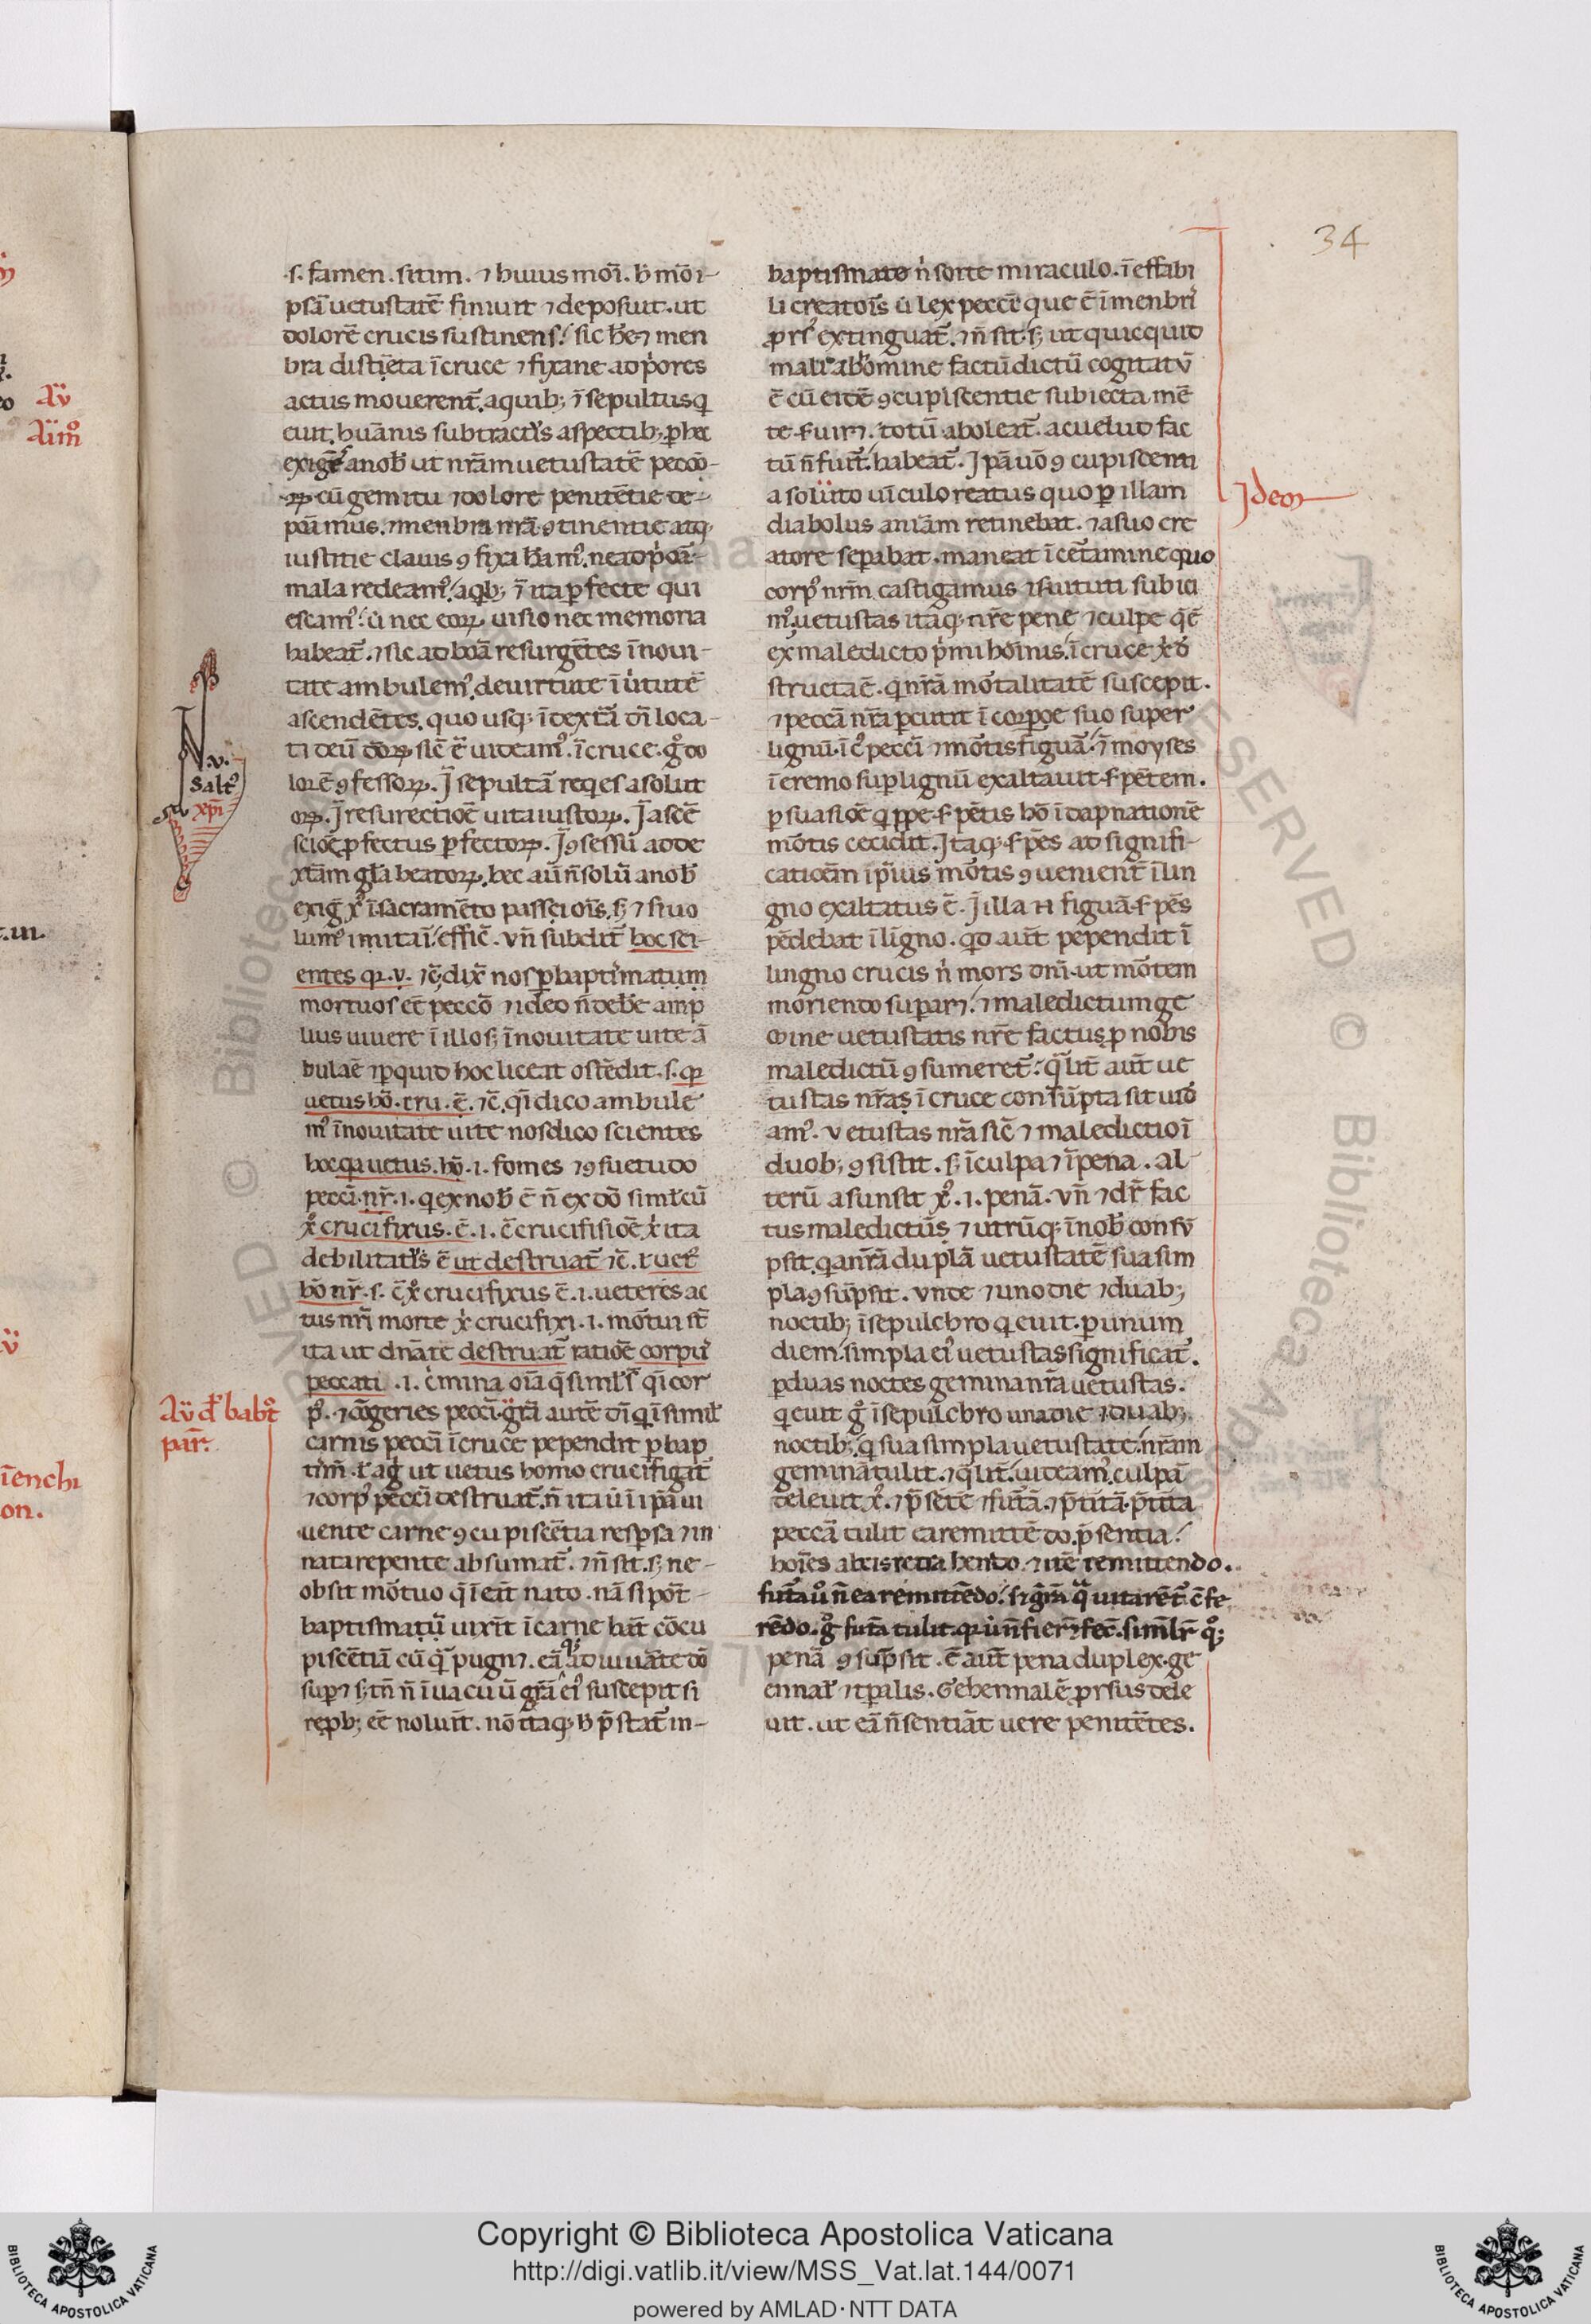 34
.s. famen. sitim. ⁊ huius mōi. h̄ mōi-
psā uetustatē finiuit ⁊ deposuit. ut
dolorē crucis sustinens. sic h̄e⁊ men
bra distēta ī cruce ⁊ fixa ne ad p̍ores
actus mouerent̄. a quib; ī sepultus q̍
euit. huānis subtractꝰs aspectib; p̱ hec
exigē a nob̄ ut nrām uetustatē pecco-
ꝝ cū gemitu ⁊ dolore penitētie de-
pōimus. ⁊ menbra nrā ꝯtinentie atq;
iustitie clauis ꝯfixa h̄amꝰ. ne ad p̍oa-
mala redeamꝰ. a q̍b; ī ita p̱fecte qui
escamꝰ. ů nec eoꝝ uisio nec memoria
habeat̄. ⁊ sic ad boā resurgētes ī noui-
tate ambulemꝰ. de uirtute ī ůtutē
ascendētes. quo usq; ī dext̄a dī loca-
ti deū deoꝝ sic̄ ē uideamꝰ. ī cruce. g̊ do
lorē ꝯfessoꝝ. J̄ sepulta req̍es a solut
oꝝ. J̄ resurectioē uita iustoꝝ. J̄ ascē
scioē p̱fectus p̱fectoꝝ. J̄ ꝯsessu ad de
xtām glā beatoꝝ. hec aū n̄ solū a nob̄
exiḡ xꝰ ī sacramēto passciois. s; ⁊ suo
lumꝰ imitai effic̄. vn̄ subdit̄ hoc sci-
entes q̱. v. ⁊c̄. dix̄ nos p̱ baptimatum
mortuos eē peccō ⁊ ideo n̄ debe amp̱
lius uiuere ī illo s; ī nouitate uite ā
bulaē ⁊ p̱ quid hoc liceat ostēdit. s. q̱
uetus hō. cru. ē. ⁊c̄. q̍ dico ambule
mꝰ ī nouitate uite nos dico scientes
hoc q̍a uetus. hō. .i. fomes ⁊ ꝯsuetudo
pecci. nr̄. .i. q̍ ex nob̄ ē n̄ ex dō simł cū
xꝰ crucifixus. ē. .i. ē crucifisioē x̍ ita
debilitatꝰs ē ut destruat̄ ⁊c̄. ł uet̄
hō nr̄. s. c̄ xꝰ crucifixus ē. .i. ueteres ac
tus nr̄i morte x̍ crucifixi. .i. mōtui st̄
ita ut dnātē destruat̄ ratioē corpu̍
peccati .i. c̍mina oīa q̄ simł s̄ q̍ī cor
pꝰ. ⁊ cōgeries pecci. grā autē dī q̍ ī simił
carnis pecci ī cruce pependit p̱ bap
tm̄. ł aḡ ut uetus homo crucifigat̄
⁊ corpꝰ pecci destruat̄. n̄ ita ů ī ip̄a ui
uente carne ꝯcupiscētia resp̱sa ⁊ in
nata repente absumat̄. ⁊ n̄ sit. s; ne-
obsit mōtuo q̍ ī eāt nato. nā si pōt-
baptismatū uixit̄ ī carne hāt cōcu
piscētiā cū q̄ pugn⁊. eā adiuuāte dō
sup̱⁊ s; tn̄ n̄ ī uacuū grā eiꝰ suscepit si
rep̱b; eē noluit̄. nō itaq; h̄ p̄stat̄ in-
baptismate n̍ sorte miraculo. ī effabi
li creatois ů lex peccē que ē ī menbri̍
p̱rsꝰ extinguat̄. ⁊ n̄ sit. s; ut quicquid
mali ab homine factū dictū cogitatū
ē cū eidē ꝯcupiscentie subiecta mē
te ẜuir⁊. totū aboleat̄. ac uelud fac
tū n̄ fuit̄ habeat̄. Jp̄a uō ꝯcupiscenti
a soluto uīculo reatus quo p̱ illam
diabolus aniām retinebat. ⁊ a suo cre
atore sep̱abat. maneat ī cētamine quo
corpꝰ nrm̄ castigamus ⁊ ẜuituti subici
mꝰ. uetustas itaq; nrē pene ⁊ culpe q̄ ē
ex maledicto p̍mi hōinis. ī cruce x̍ d̄
structa ē. q̍ nrā mōtalitatē suscepit.
⁊ peccā nrā p̱cutit ī corpoe suo super
lignū. ī c̍ pecci ⁊ mōtis figuā. ī moyses
ī eremo sup̱ lignū exaltauit ẜpētem.
p̱suasioē q̍ppe ẜpētis hō ī dapnationē
mōtis cecidit. Jtaq; ẜpēs ad signifi-
catioēm ip̄ius mōtis ꝯuenient̄ ī lin
gno exaltatus ē. J̄ illa n̄ figuā ẜpēs
pēdebat ī ligno. q̍d aut̄ pependit ī
lingno crucis n̍ mors dm̄. ut mōtem
moriendo sup̱ar⁊. ⁊ maledictum ge
mine uetustatis nrē factus p̱ nobis
maledictū ꝯsumeret̄. q̄lit̄ aut̄ ue
tustas nrās ī cruce consūpta sit uid̄
amꝰ. vetustas nrā sic̄ ⁊ maledictio ī
duob; ꝯsistit. s; ī culpa ⁊ ī pena. al
terū asunsit xꝰ. .i. penā. vn̄ ⁊ dr̄ fac
tus maledictus ⁊ utrūq; ī nob̄ consū
psit. q̍a nrā duplā uetustatē sua sim
pla ꝯsūpsit. vnde ⁊ uno die ⁊ duab;
noctib; ī sepulchro q̍euit. p̱ unum
diem simpla eiꝰ uetustas significat̄.
p̱ duas noctes gemina nrā uetustas.
q̍euit g̊ ī sepulchro una die ⁊ duab;
noctib;. q̍ sua simpla uetustate nrām
geminā tulit. ⁊ q̄lit̄ uideamꝰ. culpā
deleuit xꝰ. ⁊ p̄sētē ⁊ fut̄ā. ⁊ p̄titā. p̄tita
peccā tulit ea remittēdo. p̄sentia
hoīes ab eis retrahendo. ⁊ itē remittendo.
fut̄a uͦ n̄ ea remittēdo. s; grā q̄ uitarēt̄ ꝯfe
rēdo. g̊ fut̄a tulit. q̱ ů n̄ fier⁊ fec̄. simłr̄ q̊;
penā ꝯsūpsit. ē aut̄ pena duplex. ge
ennał ⁊ tp̱alis. Gehennalē p̱rsus dele
uit. ut eā n̄ sentiāt uere penitētes.
Nv.
Salt̄
xp̄i
Aü d̄ babt̊
par̄.
Jdem
Aü
īenchi
on.
Copyright © Biblioteca Apostolica Vaticana
http://digi.vatlib.it/view/MSS_Vat.lat.144/0071
powered by AMLAD·NTT DATA
BIBLIOTECA APOSTOLICA VATICANA
BIBLIOTECA APOSTOLICA VATICANA